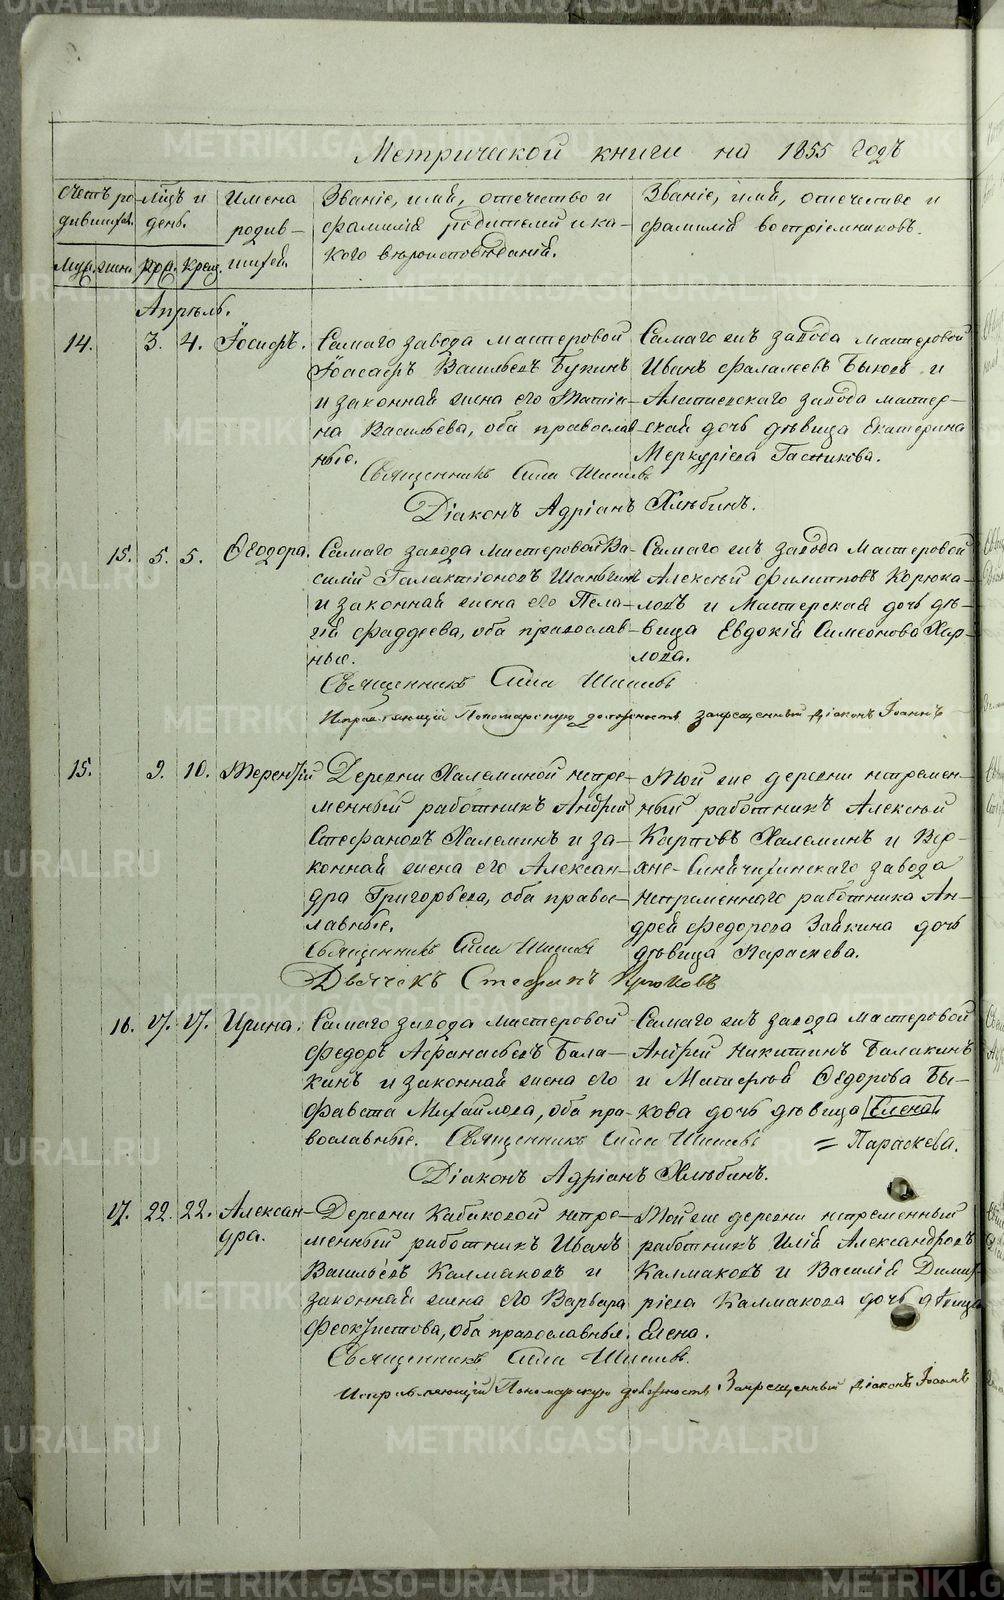 Метрической книги на 1855 годъ
Счетъ ро-
дившихся.
Мѣсяцъ и
день.
Имена
родив-
шихся.
Званіе, имя, отчество и
фамилія родителей и ка-
кого вѣроисповѣданія.
Званіе, имя, отчество и
фамилія воспріемниковъ.
Муж. жен. рож. крещ.
Апрѣль.
14. 3. 4. Іосифъ.
Самаго завода мастеровой
Іоасафъ Васильевъ
и законная жена его Татія-
на Васильева, оба православ-
ные.
Самаго жъ завода мастеровой
Иванъ Фалалеевъ Быковъ и
завода мастер-
ской дочь дѣвица Екатерина
Меркуріева
Священникъ Сила
Діаконъ Адріанъ Хлѣбинъ.
15. 5. 5. Ѳеодора.
Самаго завода мастеровой Ва-
силій Галактіоновъ
и законная жена его Пела-
гія Фаддеева, оба православ-
ные.
Самаго жъ завода мастеровой
Алексѣй Филиповъ Корюка-
ловъ и мастерская дочь дѣ-
вица Евдокія Симеонова Кар-
лова.
Священникъ Сила
Исправляющій Пономарскую должность запрещенный діаконъ Іоаннъ
15. 9. 10. Терентій
Деревни Халеминой непре-
менный работникъ Андрей
Стефановъ Халеминъ и за-
конная жена его Алексан-
дра Григорьева, оба правос-
лавные.
Той же деревни непремен-
ный работникъ Алексѣй
Карповъ Халеминъ и Вер-
хне-Синячихинскаго завода
непременнаго работника Ан-
дрея Федорова Зайкина дочь
дѣвица Параскева.
Священникъ Сила
Дьячекъ Стефанъ
16. 17. 17. Ирина.
Самаго завода мастеровой
Федоръ Афанасьевъ Бала-
кинъ и законная жена его
Фавста Михайлова, оба пра-
вославные.
Самаго жъ завода мастеровой
Андрей Никитинъ Балакинъ
и Матфѣя Ѳедорова Бы-
кова дочь дѣвица Елена
= Параскева.
Священникъ Сила
Діаконъ Адріанъ Хлѣбинъ.
17. 22. 22. Алексан-
дра.
Деревни Кабаковой непре-
менный работникъ Иванъ
Васильевъ Калмаковъ и
законная жена его Варвара
Феоктистова, оба православные.
Той же деревни непременный
работникъ Илія Александровъ
Калмаковъ и Василія Димит-
ріева Калмакова дочь дѣвица
Елена.
Священникъ Сила
Исправляющій Пономарскую должность Запрещенный діаконъ Іоаннъ
METRIKI.GASO-URAL.RU